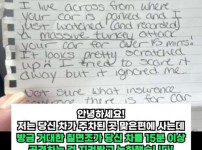 I live across from where
your car is parked and I
just watched (and recorded)
a massive turkey attack
your car for over 15 mins!
It looks pretty scratched
up & I tried to scare it
away but it ignored me.
Not sure what insurance
there is for car
안녕하세요!
저는 당신 차가 주차된 곳 맞은편에 사는데
방금 거대한 칠면조가 당신 차를 15분 이상